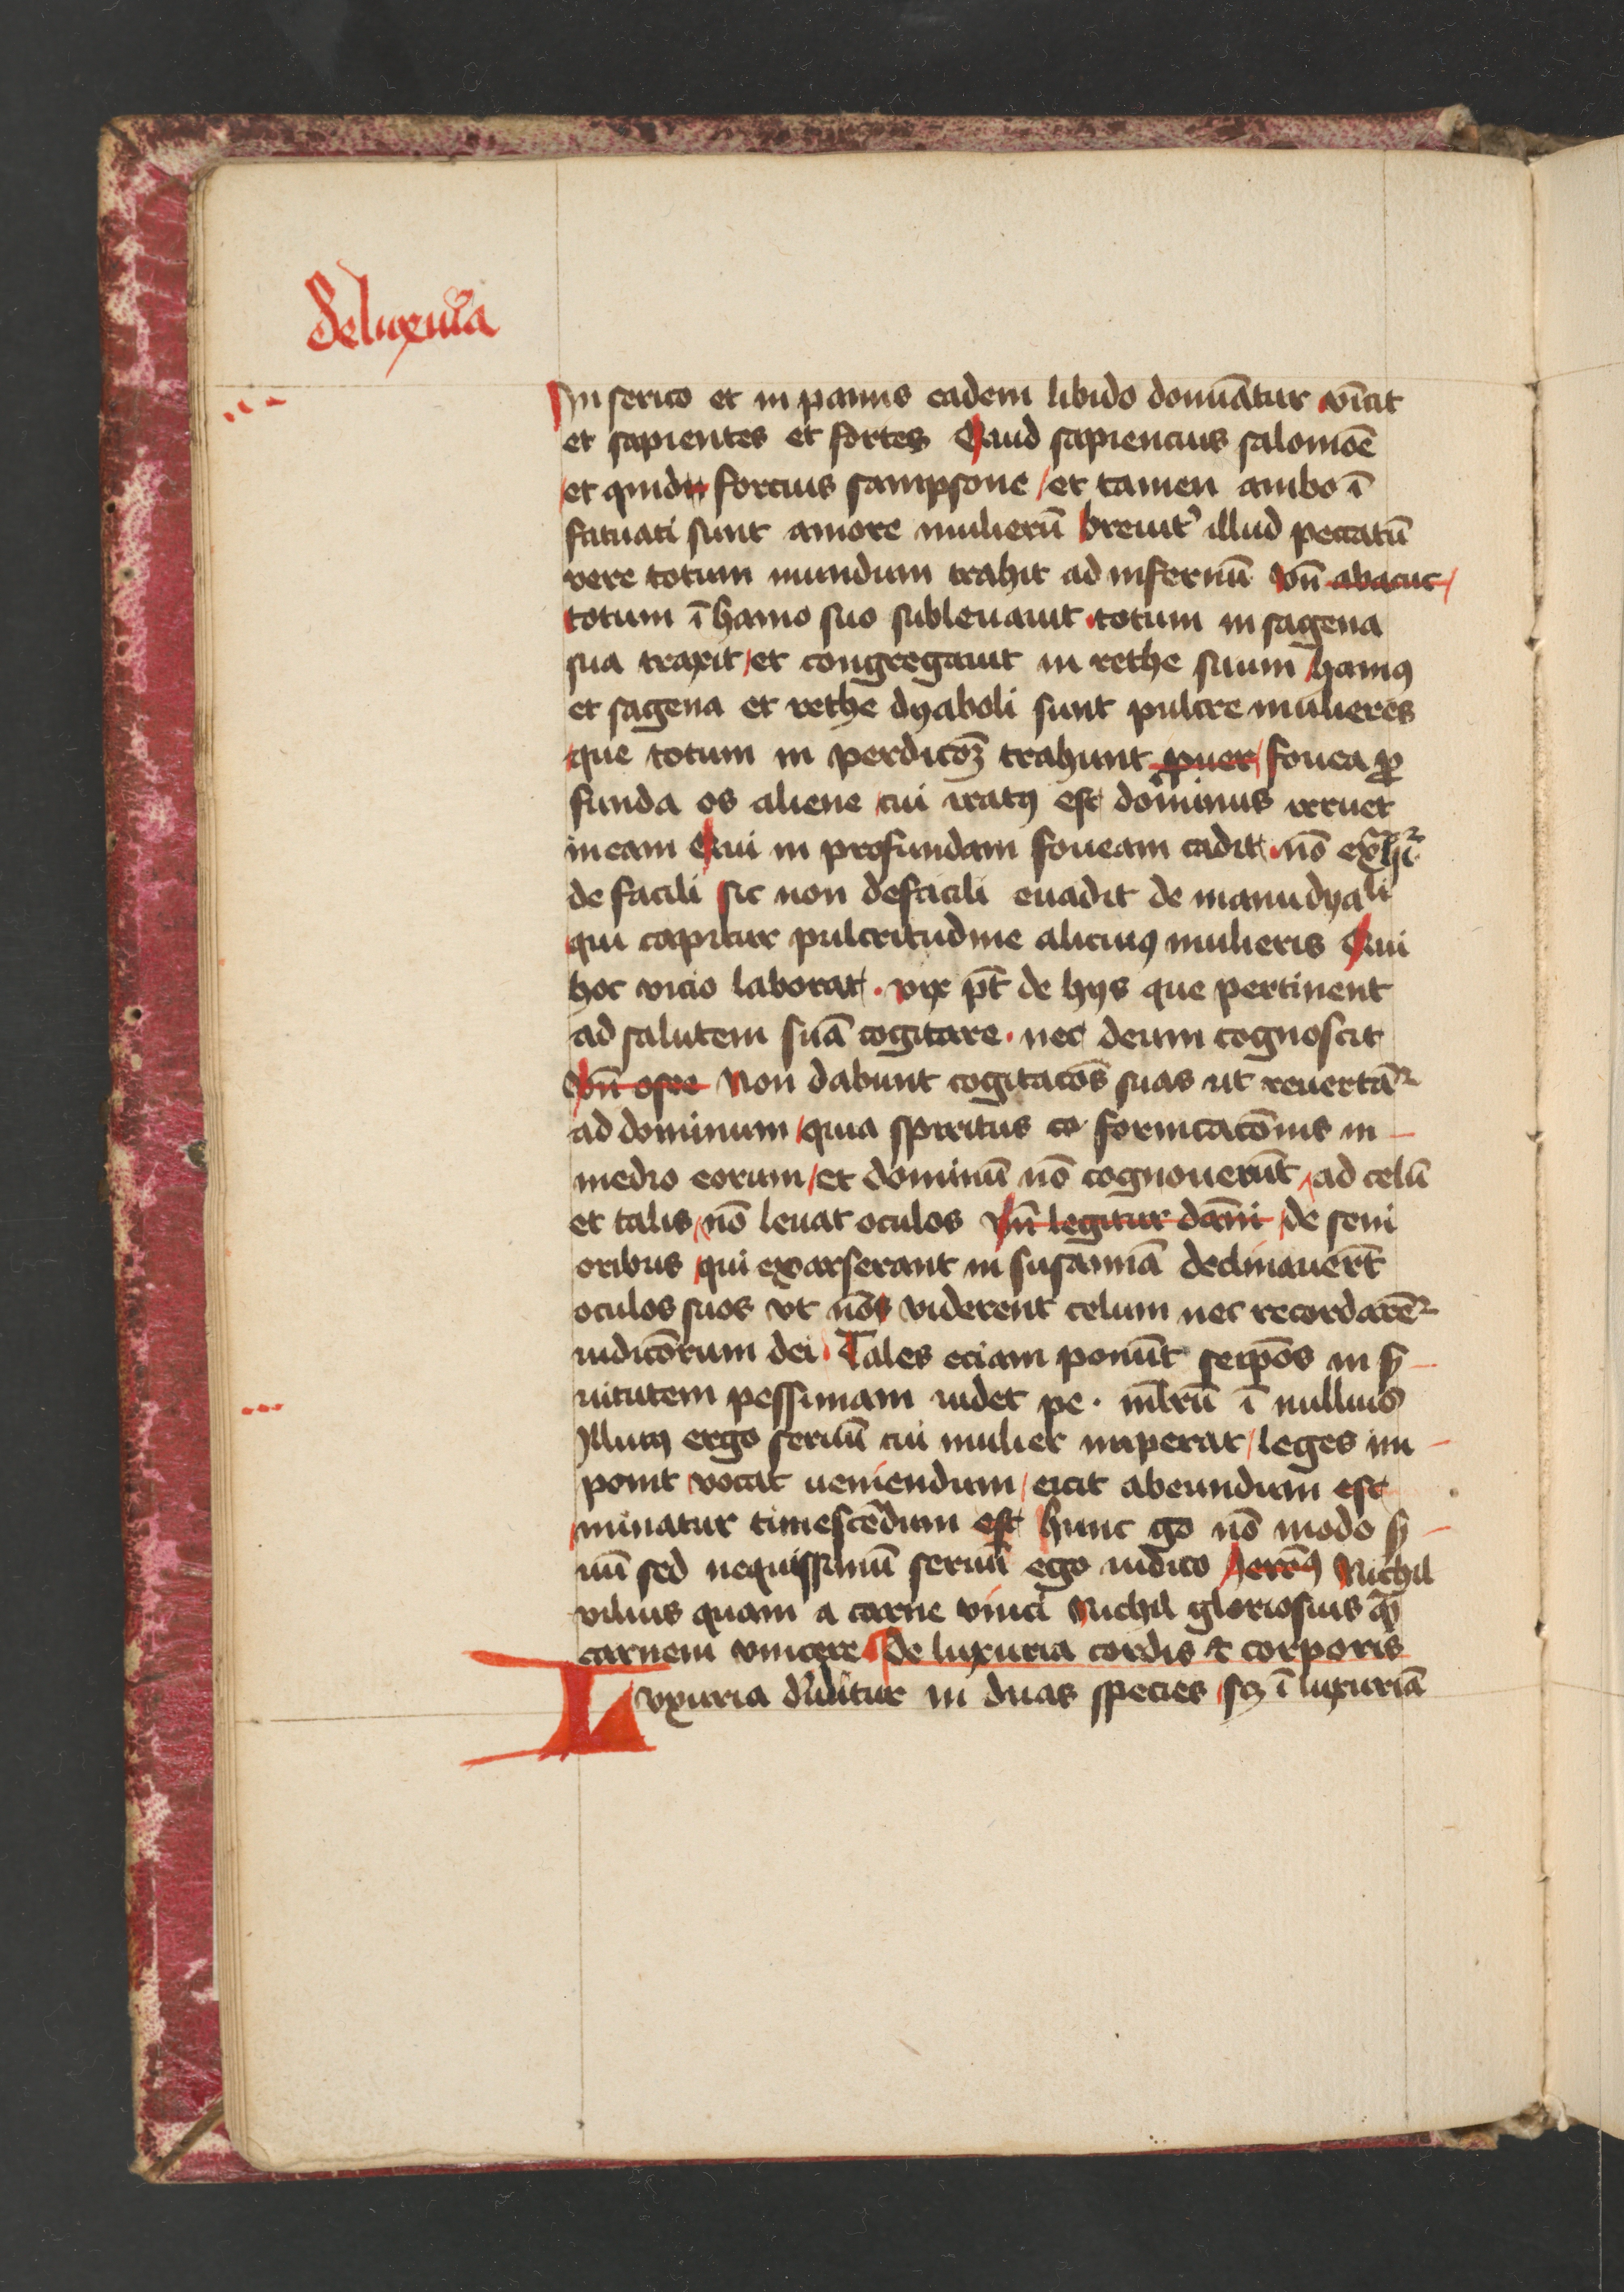 De luxuria
In serico et in pannis eadem libido domināt̄ur vīcit
et sapientes et fortes Quid sapiencius salomōe
et quid forcius sampsone et tamen ambo ī
fatuati sunt amore mulierū breuit᾽ illud peccatū
vere totum mundum trahit ad infernū vn̄ abacuc
totum ī hamo suo subleuauit totum in sagena
sua traxit et congregauit in rethe suum hamꝰ
et sagena et rethe dyaboli sunt pulcre mulieres
que totum in perdicōꝫ trahunt puer fouea ꝓ
funda os aliene cui iratꝰ est dominus irruet
in eam Qui in profundam foueam cadit nō exͣhit᷑
de facili sic non defacili euadit de manu dyali
qui capitur pulcritudine alicuiꝰ mulieris Qui
hoc vicio laborat vix pt̄ de hijs que pertinent
ad salutem suā cogitare nec deum cognoscit
vn̄ osee Non dabunt cogitacōs suas ut reuertāt᷑
ad dominum quia spiritus co fornicacōnis in
medio eorum et dominū nō cognouerūt ad celū
et talis nō leuat oculos vn̄ legitur dāni de seni
oribus qui exarserant in susannā declinauerūt
oculos suos vt nō viderent celum nec recordarēt᷑
iudicōrum dei Tales eciam ponūt seipōs in ẜ
uitutem pessimam uidet pe. mb̄rū ī nullius
Illum ergo seruū cui mulier imperat leges im
ponit vocat ueniendum eicit abeundum est
minatur timescēdum est hunc go nō modo ẜ
uū sed nequissimū seruū ego iudico Jerōꝰ Nichil
vilius quam a carne vinci Nichil gloriosius qͣ̄
carnem vincere De luxuria cordis et corporis
Lvxuria diuiditur in duas species scꝫ ī luxuriā